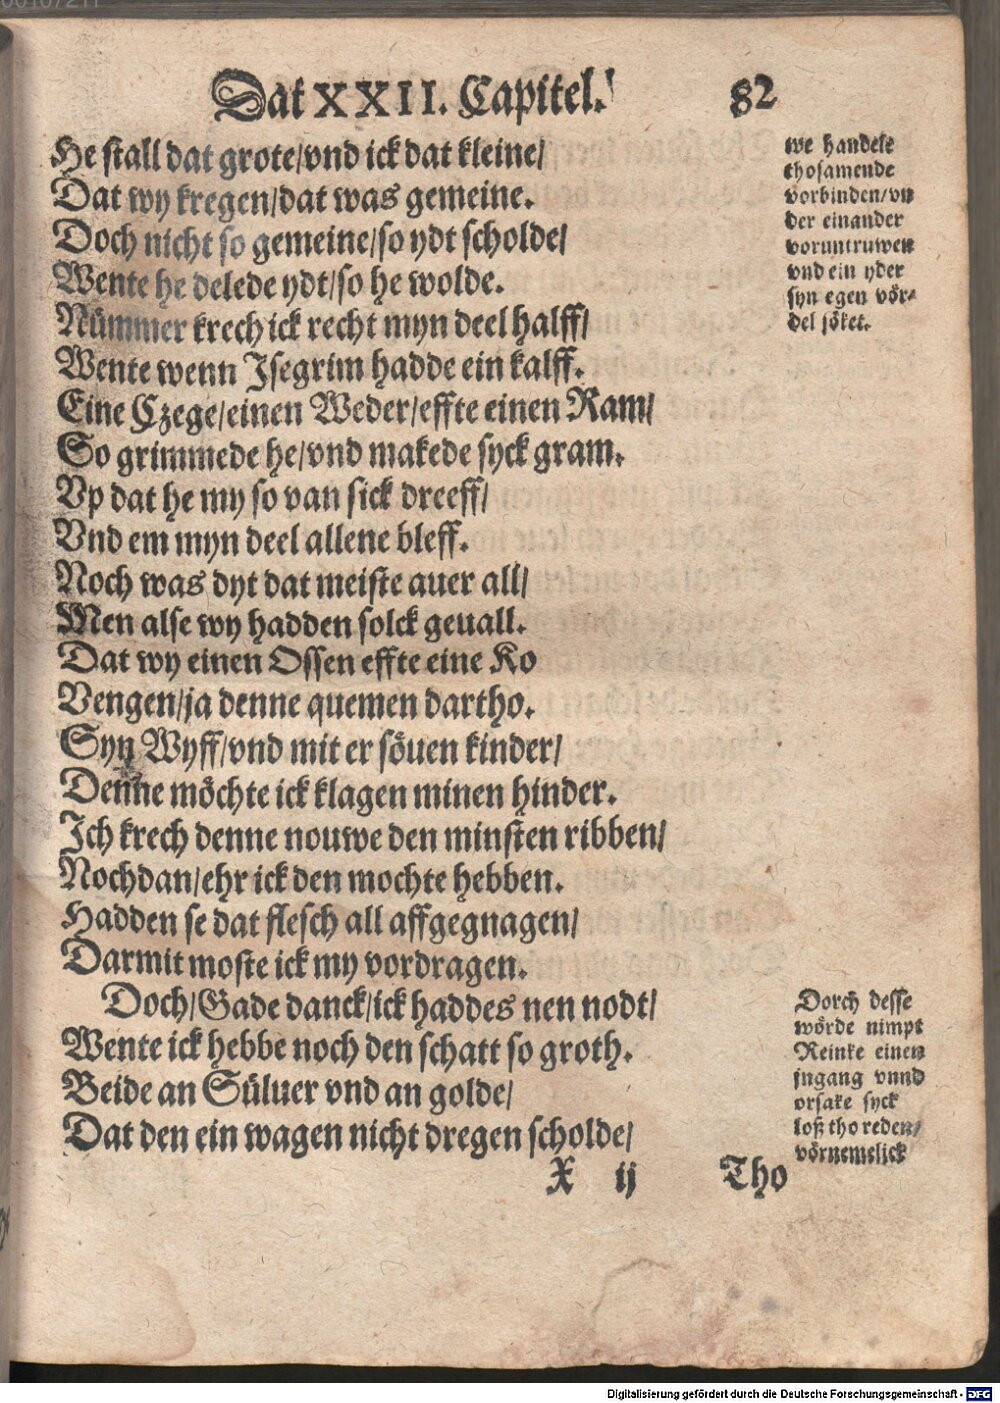 Dat XXII. Capitel. 82
He stall dat grote/vnd ick dat kleine/
Dat wy kregen/dat was gemeine.
Doch nicht so gemeine/so ydt scholde/
Wente he delede ydt/so he wolde.
Nümmer krech ick recht myn deel halff/
Wente wenn Isegrim hadde ein kalff.
Eine Czege/einen Weder/effte einen Ram/
So grimmede he/vnd makede syck gram.
Vp dat he my so van sick dreeff/
Vnd em myn deel allene bleff.
Noch was dyt dat meiste auer all/
Men alse wy hadden solck geuall.
Dat wy einen Ossen effte eine Ko
Vengen/ja denne quemen dartho.
Syn Wyff/vnd mit er söuen kinder/
Denne möchte ick klagen minen hinder.
Ich krech denne nouwe den minsten ribben/
Nochdan/ehr ick den mochte hebben.
Hadden se dat flesch all affgegnagen/
Darmit moste ick my vordragen.
Doch/Gade danck/ick haddes nen nodt/
Wente ick hebbe noch den schatt so groth.
Beide an Süluer vnd an golde/
Dat den ein wagen nicht dregen scholde/
X ij Tho
we handele
thosamende
vorbinden/vn
der einander
voruntruwen
vnd ein yder
syn egen vör-
del söket.
Dorch desse
wörde nimpt
Reinke einen
jngang vnnd
orsake syck
loß tho reden/
vörnemelick
Digitalisierung gefördert durch die Deutsche Forschungsgemeinschaft - DFG